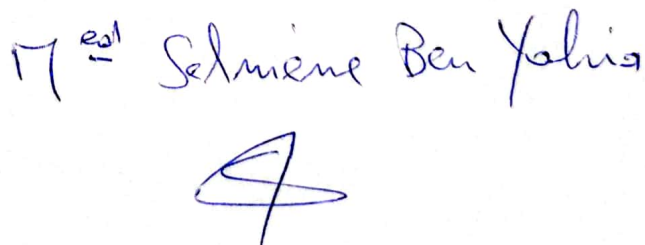 Med Selmene Ben Yahia